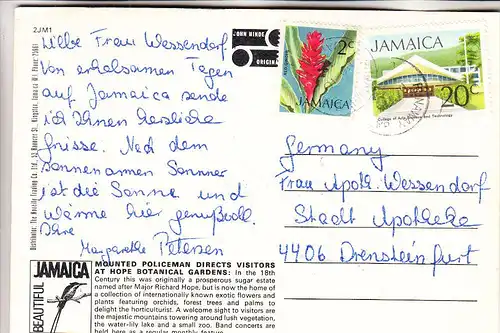 2JM1
JOHN HINDE
ORIGINAL
2c
JAMAICA
JAMAICA
20c
College of Arts, Science and Technology
Liebe Frau Wessendorf
Von erholsamen Tagen
auf Jamaica sende
ich Ihnen herzliche
Grüsse. Nach dem
sonnenarmen Sommer
ist die Sonne und
Wärme hier genußvoll.
Ihre
Margarethe Petersen
Germany
Frau Apoth. Wessendorf
Stadt Apotheke
4406 Drensteinfurt
Distributor: The Novelty Trading Co. Ltd.
JAMAICA
BEAUTIFUL
MOUNTED POLICEMAN DIRECTS VISITORS
AT HOPE BOTANICAL GARDENS: In the 18th
Century this was originally a prosperous sugar estate
named after Major Richard Hope, but is now the home of
a collection of internationally known exotic flowers and
plants featuring orchids, forest trees and palms to
delight the horticulturist. A welcome sight to visitors are
the majestic mountains towering around lush vegetation,
the water-lily lake and a small zoo. Band concerts are
held here as a popular monthly feature.